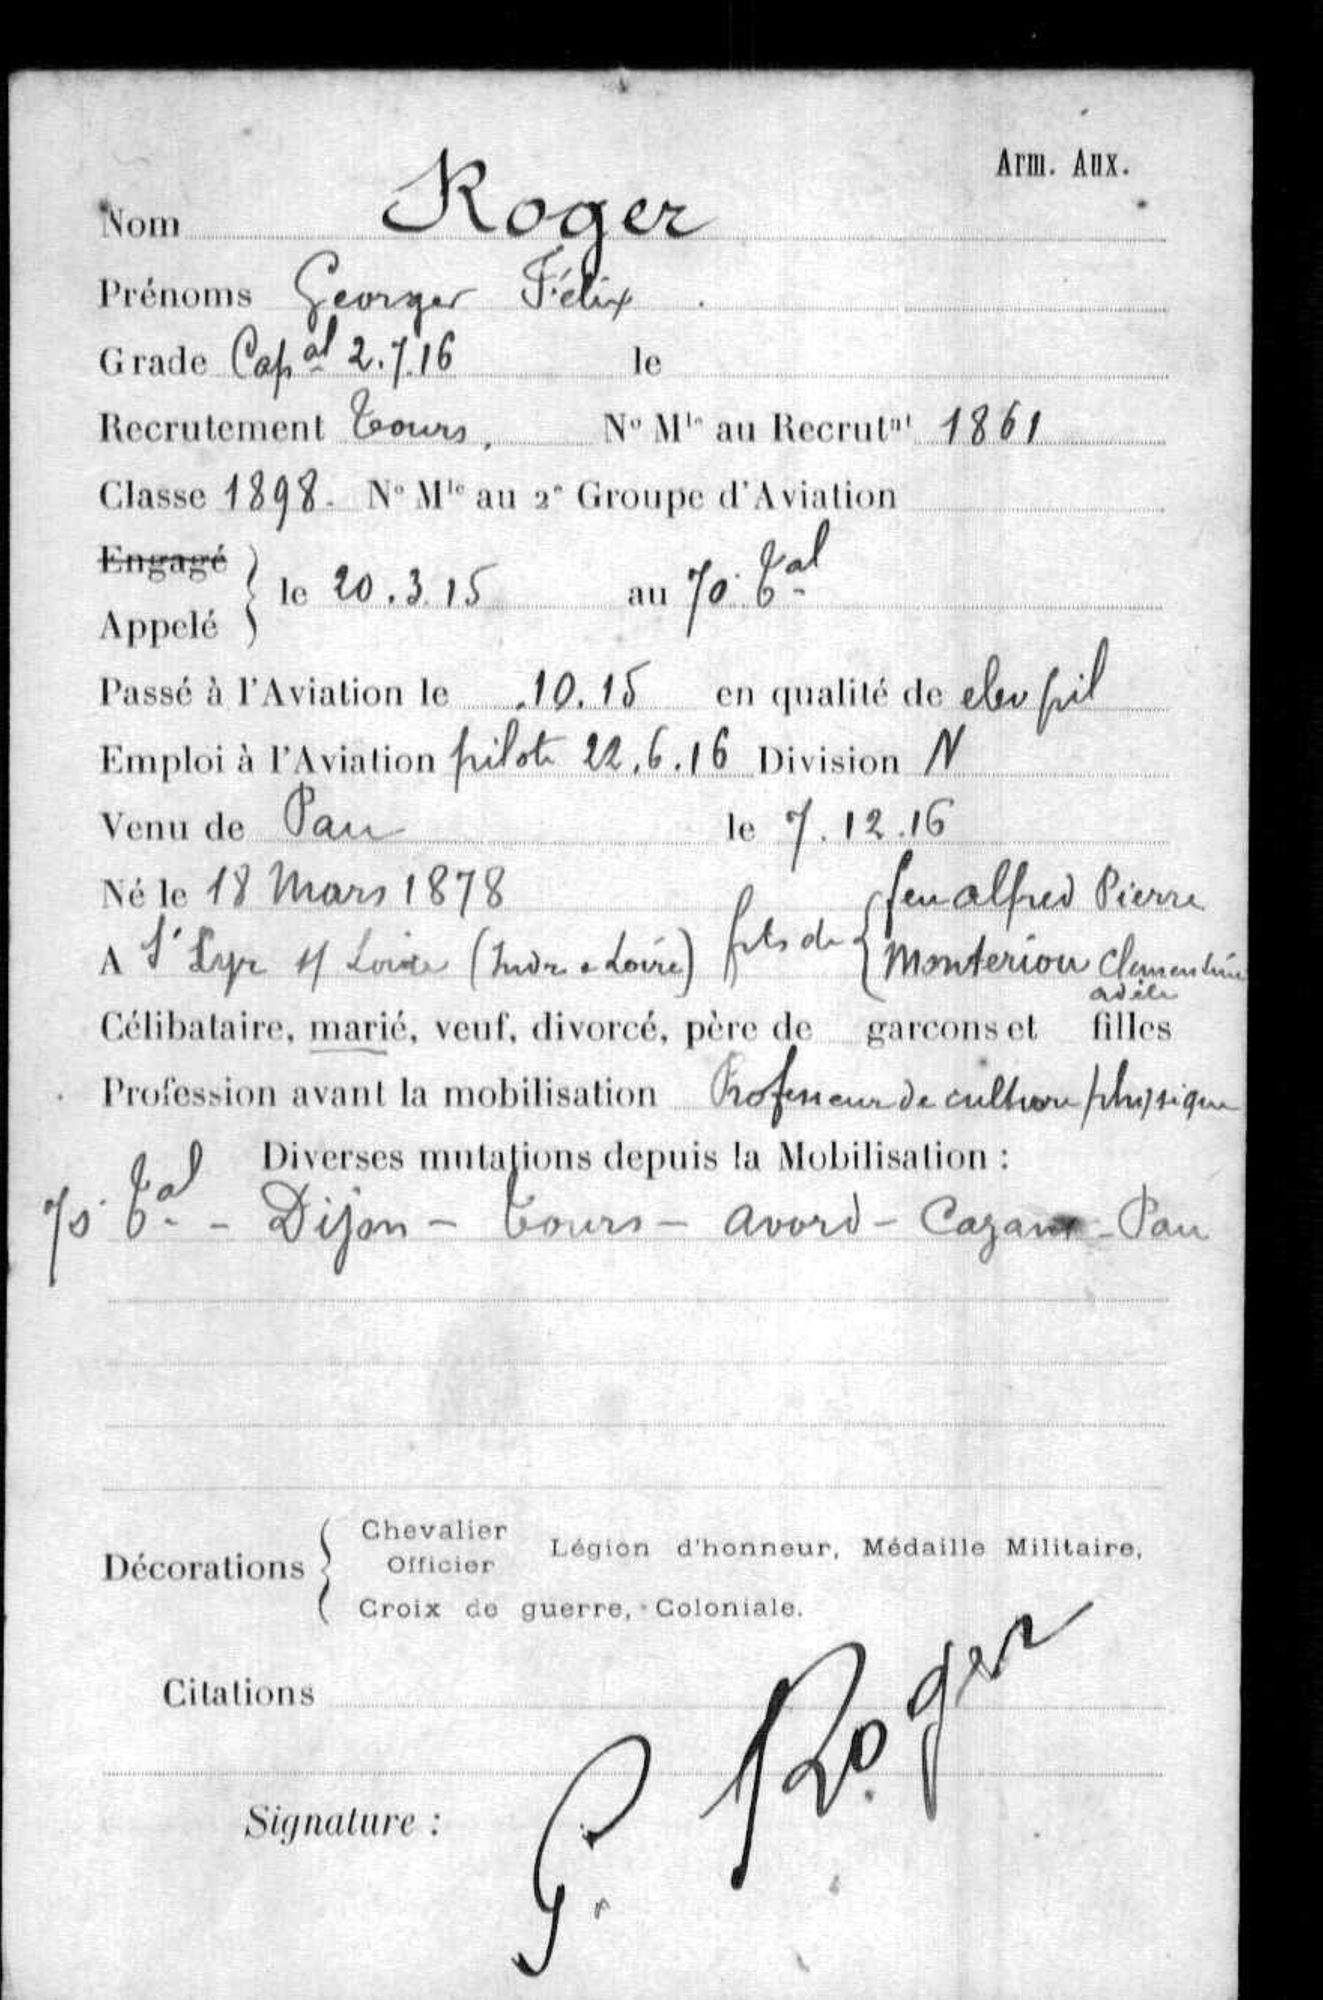 Arm. Aux.
Nom Roger
Prénoms Georges Félix
Grade Capal 2.7.16 le
Recrutement Tours, No Mle au Recrutnt 1861
Classe 1898. No Mle au 2e Groupe d'Aviation
Engagé
le 20.3.15 au 70e tal
Appelé
Passé à l'Aviation le .10.15 en qualité de elev pil
Emploi à l'Aviation pilote 22.6.16 Division N
Venu de Pau le 7.12.16
Né le 18 Mars 1878 fils de feu Alfred Pierre
A St Cyr s/ Loire (Indre e Loire) Monteriou Clementine
adèle
Célibataire, marié, veuf, divorcé, père de garcons et filles
Profession avant la mobilisation Professeur de culture physique
Diverses mutations depuis la Mobilisation :
70e tal - Dijon - Tours - Avord - Cazaux - Pau
Chevalier
Décorations Officier Légion d'honneur, Médaille Militaire,
Croix de guerre, Coloniale.
Citations
Signature :
G. Roger